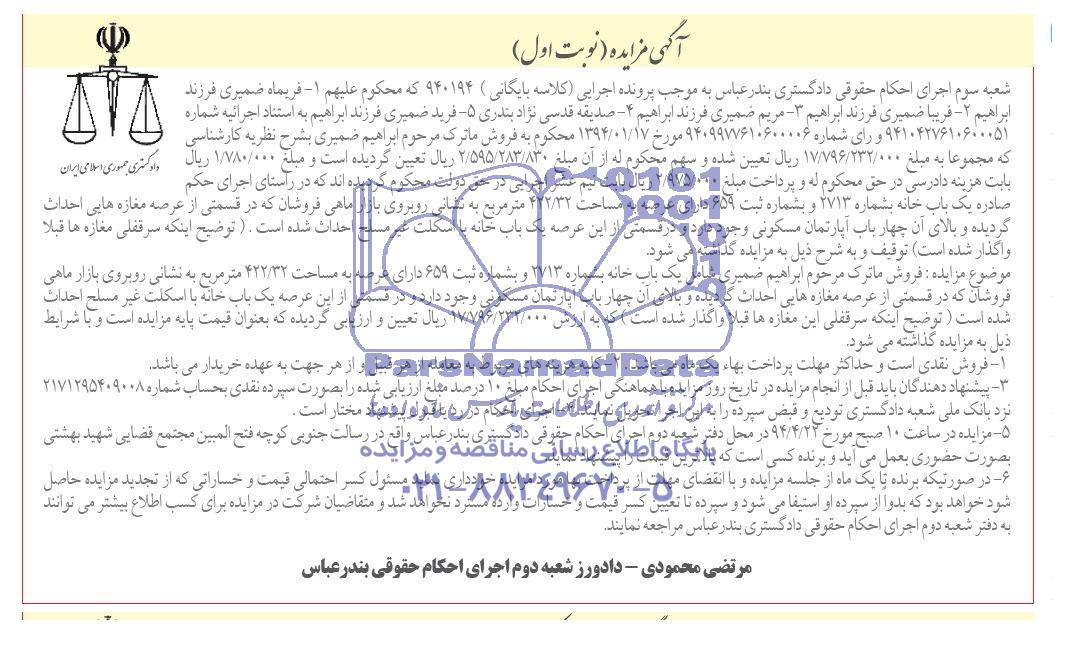 آگهی مزایده (نوبت اول)
دادگستری جمهوری اسلامی ایران
شعبه سوم اجرای احکام حقوقی دادگستری بندرعباس به موجب پرونده اجرایی (کلاسه بایگانی ) ۹۴۰۱۹۴ که محکوم علیهم ۱- فریماه ضمیری فرزند
ابراهیم ۲- فریبا ضمیری فرزند ابراهیم ۳- مریم ضمیری فرزند ابراهیم ۴- صدیقه قدسی نژاد بندری ۵- فرید ضمیری فرزند ابراهیم به استناد اجرائیه شماره
۹۴۱۰۴۲۷۶۱۰۶۰۰۰۵۱ و رای شماره ۹۴۰۹۹۷۷۶۱۰۶۰۰۰۰۶ مورخ ۱۳۹۴/۰۱/۱۷ محکوم به فروش ماترک مرحوم ابراهیم ضمیری بشرح نظریه کارشناسی
که مجموعا به مبلغ ۱۷/۷۹۶/۲۳۲/۰۰۰ ریال تعیین شده و سهم محکوم له از آن مبلغ ۲/۵۹۵/۲۸۳/۸۳۰ ریال تعیین گردیده است و مبلغ ۱/۷۸۰/۰۰۰ ریال
بابت هزینه دادرسی در حق محکوم له و پرداخت مبلغ ۲/۹۷۵/۰۰۰ ریال بابت نیم عشر اجرایی در حق دولت محکوم گردیده اند که در راستای اجرای حکم
صادره یک باب خانه بشماره ۲۷۱۳ و بشماره ثبت ۶۵۹ دارای عرصه به مساحت ۴۲۲/۳۲ مترمربع به نشانی روبروی بازار ماهی فروشان که در قسمتی از عرصه مغازه هایی احداث
گردیده و بالای آن چهار باب آپارتمان مسکونی وجود دارد و درقسمتی از این عرصه یک باب خانه با اسکلت غیر مسلح احداث شده است . ( توضیح اینکه سرقفلی مغازه ها قبلا
واگذار شده است) توقیف و به شرح ذیل به مزایده گذاشته می شود.
موضوع مزایده : فروش ماترک مرحوم ابراهیم ضمیری شامل یک باب خانه بشماره ۲۷۱۳ و بشماره ثبت ۶۵۹ دارای عرصه به مساحت ۴۲۲/۳۲ مترمربع به نشانی روبروی بازار ماهی
فروشان که در قسمتی از عرصه مغازه هایی احداث گردیده و بالای آن چهار باب آپارتمان مسکونی وجود دارد و در قسمتی از این عرصه یک باب خانه با اسکلت غیر مسلح احداث
شده است ( توضیح اینکه سرقفلی این مغازه ها قبلا واگذار شده است ) که به ارزش ۱۷/۷۹۶/۲۳۲/۰۰۰ ریال تعیین و ارزیابی گردیده که بعنوان قیمت پایه مزایده است و با شرایط
ذیل به مزایده گذاشته می شود.
۱- فروش نقدی است و حداکثر مهلت پرداخت بهاء یک ماه می باشد. ۲- کلیه هزینه های مربوط به معامله از هر قبیل و از هر جهت به عهده خریدار می باشد.
۳- پیشنهاد دهندگان باید قبل از انجام مزایده در تاریخ روز مزایده با هماهنگی اجرای احکام مبلغ ۱۰ درصد مبلغ ارزیابی شده را بصورت سپرده نقدی بحساب شماره ۲۱۷۱۲۹۵۴۰۹۰۰۸
نزد بانک ملی شعبه دادگستری تودیع و قبض سپرده را به این اجرا تحویل نمایند. ۴- اجرای احکام در رد یا قبول پیشنهاد مختار است .
۵- مزایده در ساعت ۱۰ صبح مورخ ۹۴/۴/۲۲ در محل دفتر شعبه دوم اجرای احکام حقوقی دادگستری بندرعباس واقع در رسالت جنوبی کوچه فتح المبین مجتمع قضایی شهید بهشتی
بصورت حضوری بعمل می آید و برنده کسی است که بالاترین قیمت را پیشنهاد نماید.
۶- در صورتیکه برنده تا یک ماه از جلسه مزایده و با انقضای مهلت از پرداخت بها مورد مزایده خودداری نماید مسئول کسر احتمالی قیمت و خساراتی که از تجدید مزایده حاصل
شود خواهد بود که بدوا از سپرده او استیفا می شود و سپرده تا تعیین کسر قیمت و خسارات وارده مسترد نخواهد شد و متقاضیان شرکت در مزایده برای کسب اطلاع بیشتر می توانند
به دفتر شعبه دوم اجرای احکام حقوقی دادگستری بندرعباس مراجعه نمایند.
مرتضی محمودی – دادورز شعبه دوم اجرای احکام حقوقی بندرعباس
ParsNamadData
پایگاه اطلاع رسانی مناقصه و مزایده
۰۲۱-۸۸۳۴۹۶۷۰-۵